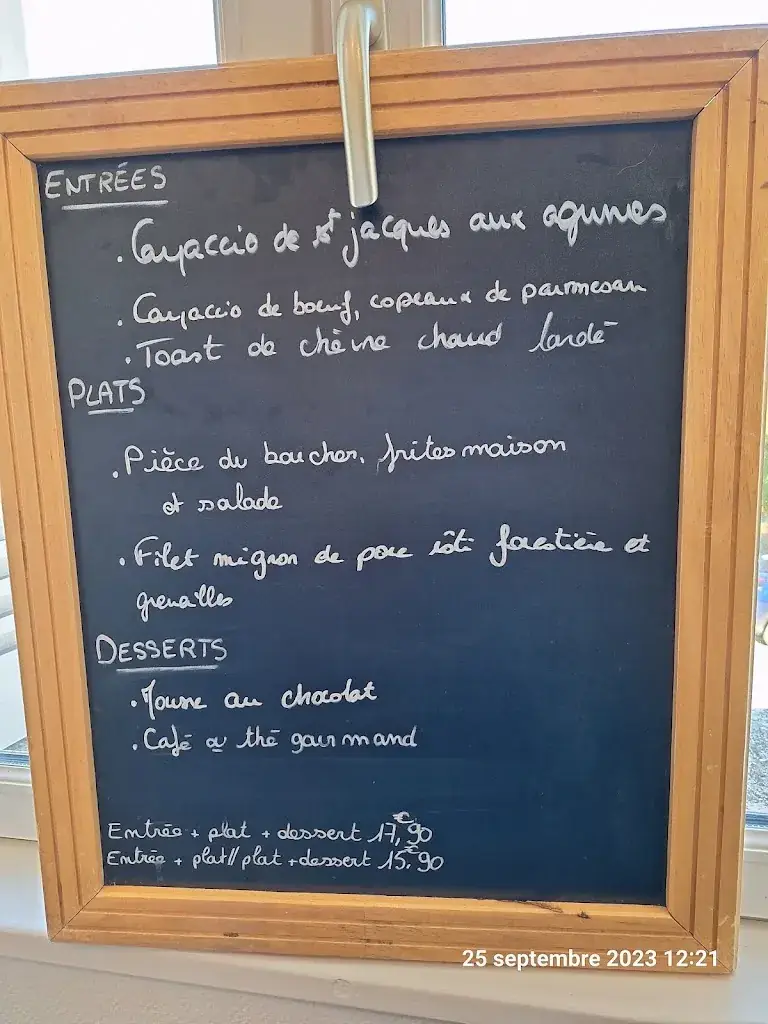 ENTRÉES
. Carpaccio de st jacques aux agrumes
. Carpaccio de boeuf, copeaux de parmesan
. Toast de chèvre chaud lardé
PLATS
. Pièce du boucher, frites maison
et salade
. Filet mignon de porc rôti forestière et
grenailles
DESSERTS
. Mousse au chocolat
. Café ou thé gourmand
Entrée + plat + dessert 17,€90
Entrée + plat // plat + dessert 15,€90
25 septembre 2023 12:21